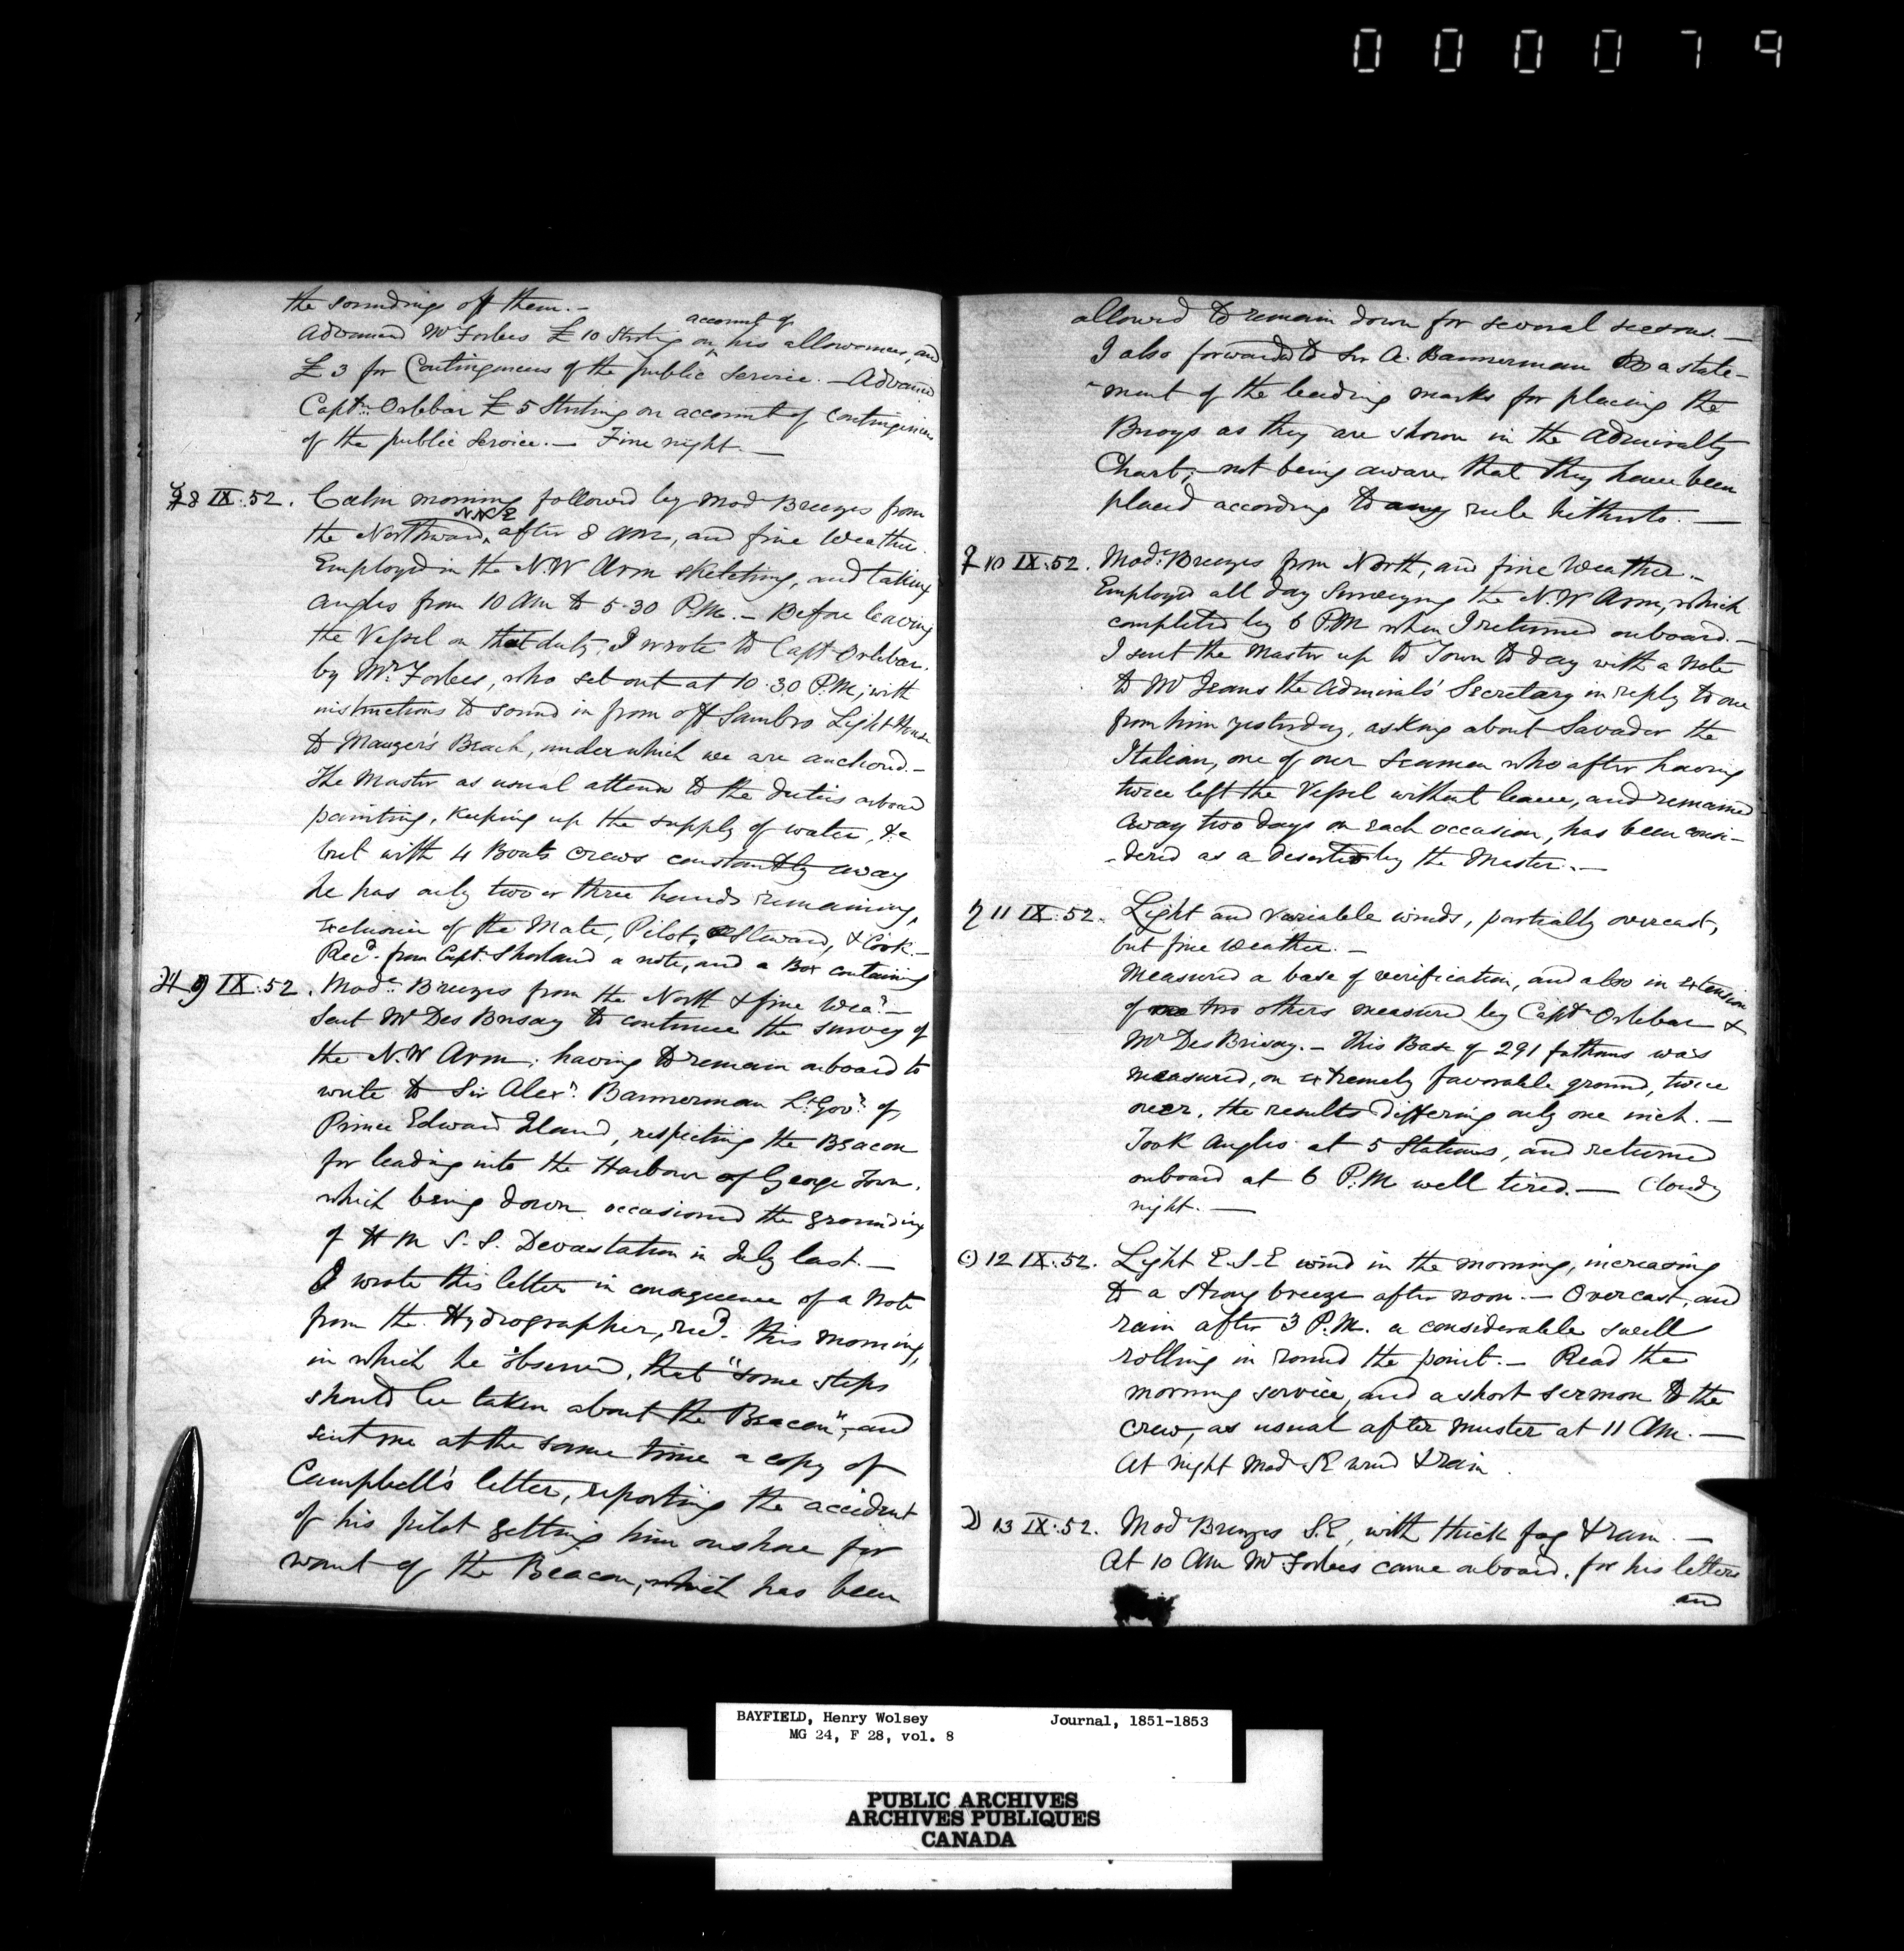 0000079
the soundings off them.-
account of
Advanced Mr Forbes £10 Sterling on ^ his allowances, and
£3 for Contingencies of the public service. - Advanced
Captn. Orlebar £5 Sterling on account of contingencies
of the public service. - Fine night. -
☿ 8 IX.52. Calm morning followed by Mod Breezes from
NNE
the Northward, after 8 AM, and fine Weather.
Employed in the N.W Arm sketching, and taking
angles from 10 AM to 5.30 P.M. - Before leaving
the Vessel on that duty, I wrote to Capt Orlebar,
by Mr. Forbes, who set out at 10.30 P.M; with
instructions to sound in from off Sambro Light House
to Mauger's Beach, under which we are anchored.-
The Master as usual attends to the duties onboard
painting, keeping up the supply of water, &c
but with 4 Boats crews constantly away
he has only two or three hands remaining,
exclusive of the Mate, Pilot, Steward, & Cook.-
Recd. from Capt. Shortland a note, and a Box containing
♃ 9 IX.52. Mode. Breezes from the North & fine Wear. -
Sent Mr Des Brisay to continue the survey of
the N.W Arm; having to remain onboard to
write to Sir Alexr. Bannerman Lt. Govr. of
Prince Edward Island, respecting the Beacon
for leading into the Harbour of George Town,
which being down occasioned the grounding
of H M S.S. Devastation in July last. -
I wrote this letter in consequence of a Note
from the Hydrographer, recd. this morning,
in which he observed, that "some steps
should be taken about the Beacon", and
sent me at the same time a copy of
Campbell's letter, reporting the accident
of his pilot getting him onshore for
want of the Beacon, which has been
allowed to remain down for several seasons. -
I also forwarded to Sir A. Bannerman a state-
-ment of the leading marks for placing the
Buoys as they are shown in the Admiralty
Chart; - not being aware that they have been
placed according to any rule hitherto. -
♀ 10 IX.52. Mode. Breezes from North, and fine Weather. -
Employed all day Surveying the N.W Arm, which
completed by 6 PM when I returned onboard. -
I sent the Master up to Town to day with a Note
to Mr Jeans the Admirals' Secretary in reply to one
from him yesterday, asking about Savador the
Italian, one of our Seamen who after having
twice left the Vessel without leave, and remained
away two days on each occasion, has been consi-
-dered as a deserter by the Master. -
♄ 11 IX.52. Light and variable winds, partially overcast,
but fine weather. -
Measured a base of verification, and also in extension
of two others measured by Captn Orlebar &
Mr DesBrisay. - This Base of 291 fathoms was
measured, on extremely favorable ground, twice
over, the results differing only one inch. -
Took Angles at 5 Stations, and returned
onboard at 6 P.M well tired. - Cloudy
night. -
☉ 12 IX.52. Light E.S.E wind in the morning, increasing
to a strong breeze after noon. - Overcast, and
rain after 3 P.M. a considerable swell
rolling in round the point. - Read the
morning service, and a short sermon to the
crew, as usual after muster at 11 AM. -
At night Mod SE wind & rain.
☽ 13 IX.52. Mod Breezes S.E, with thick fog & rain. -
At 10 AM Mr Forbes came onboard, for his letters
and
BAYFIELD, Henry Wolsey Journal, 1851-1853
MG 24, F 28, vol. 8
PUBLIC ARCHIVES
ARCHIVES PUBLIQUES
CANADA